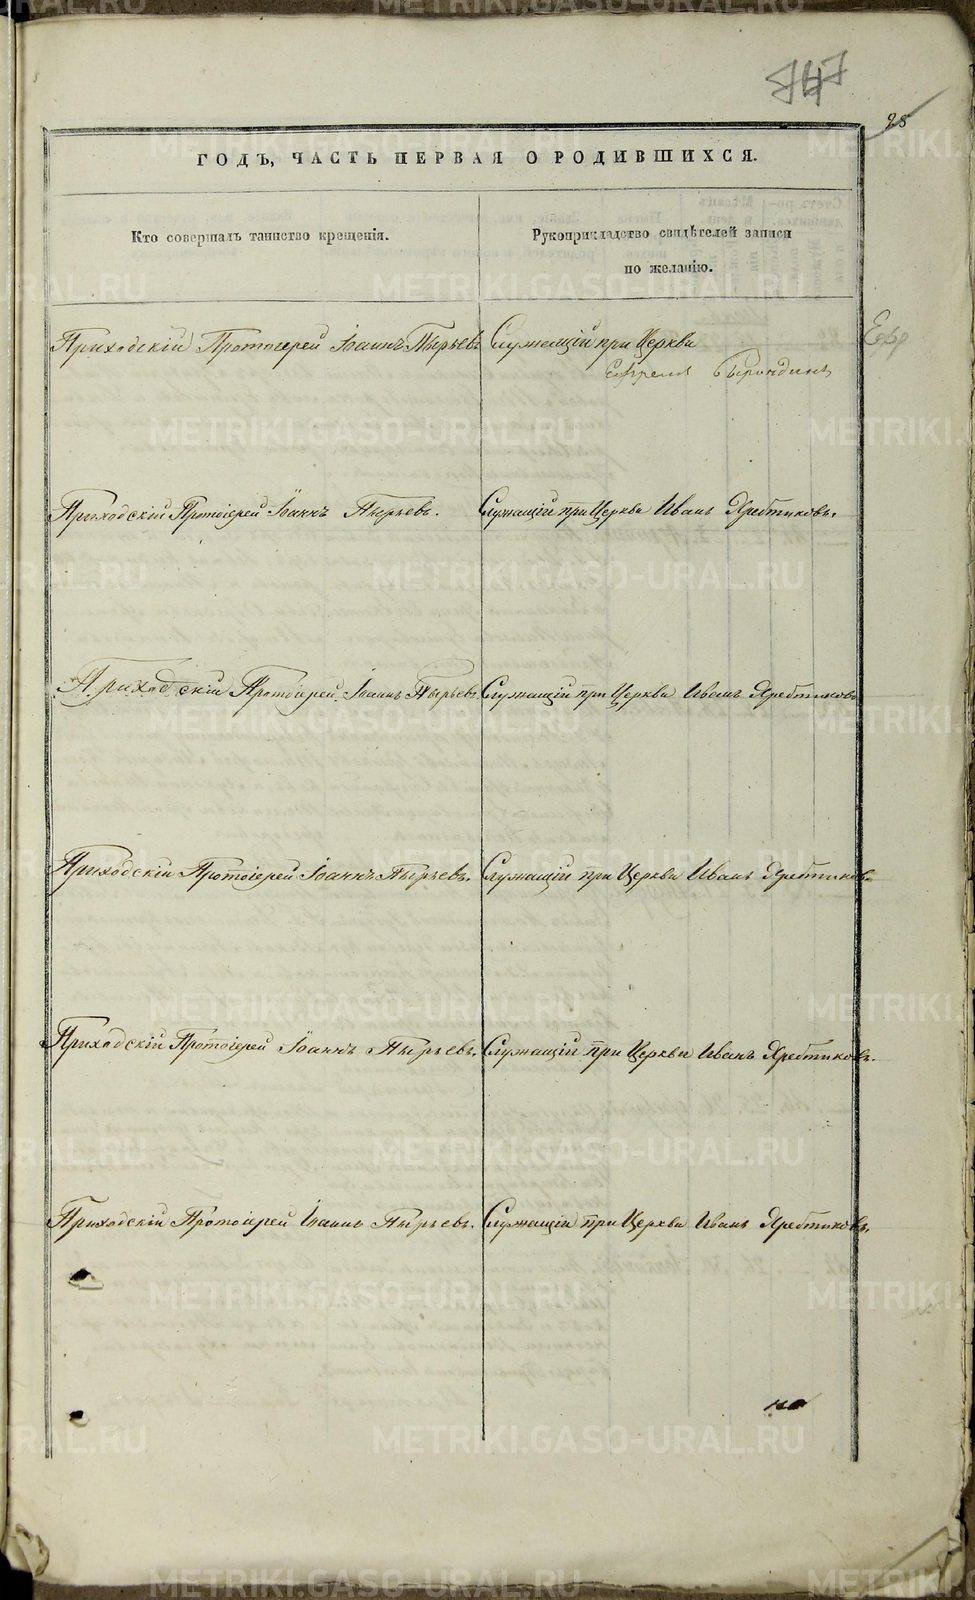 747
28
ГОДЪ, ЧАСТЬ ПЕРВАЯ О РОДИВШИХСЯ.
Кто совершалъ таинство крещенія.
Рукоприкладство свидѣтелей записи
по желанію.
Приходскій Протоіерей Іоаннъ Пырьевъ
Служащій при Церкви
Ефремъ
Приходскій Протоіерей Іоаннъ Пырьевъ.
Служащій при Церкви Иванъ Хребтиковъ.
Приходскій Протоіерей Іоаннъ Пырьевъ
Служащій при Церкви Иванъ Хребтиковъ
Приходскій Протоіерей Іоаннъ Пырьевъ.
Служащій при Церкви Иванъ Хребтиковъ
Приходскій Протоіерей Іоаннъ Пырьевъ.
Служащій при Церкви Иванъ Хребтиковъ.
Приходскій Протоіерей Іоаннъ Пырьевъ.
Служащій при Церкви Иванъ Хребтиковъ.
METRIKI.GASO-URAL.RU